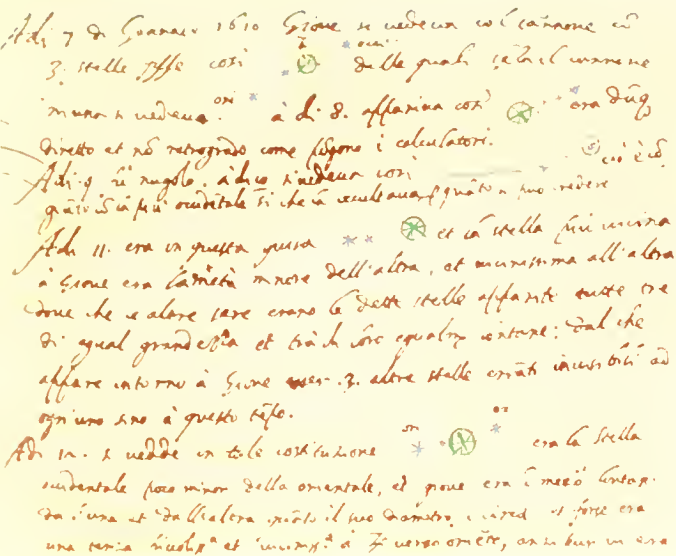 Adi 7 di Gennaio 1610 Giove si vedeva col cannone cō
3. stelle fisse così delle quali sēza il cannone
niuna si vedeva. ori à di 8. appariva così era dūq
diretto et nō retrogrado come pōgono i calculatori.
Adi 9 fù nugolo. à di 10 si vedeva così cioè cō
più occidētale si che la occultava, quāto si può credere
Adi 11. era in questa guisa et la stella più vicina
à Giove era la metà minore dell'altra, et vicinissima all'altra
dove che le altre sere erano le dette stelle apparite tutte tre
di egual grandezza et trà di loro egualmē lontane: dal che
appare intorno à Giove esser .3. altre stelle errāti invisibili ad
ogniuno sino à questo tēpo.
Adi 12. si vedde in tale costituzione era la stella
occidentale poco minor della orientale, et giove era ī mezo lontan.
da l'una et dall'altra quāto il suo diametro, circa et forse era
una terza et verso oriēte, anzi